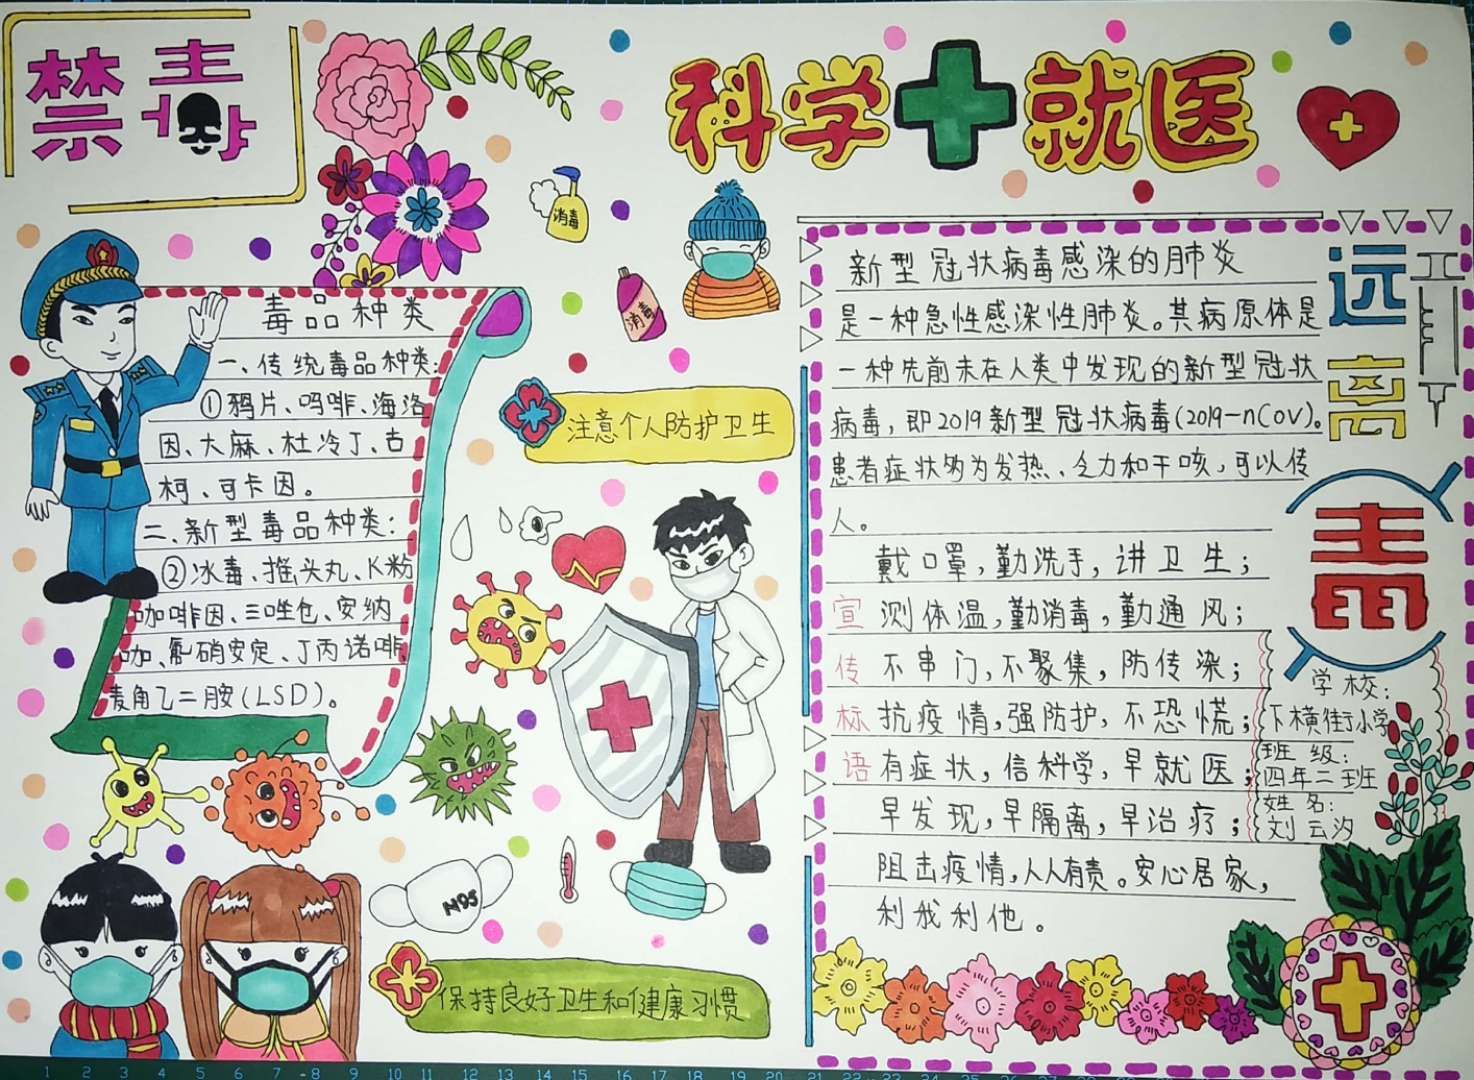 禁毒
科学就医
消毒
消毒
毒品种类
一、传统毒品种类:
①鸦片、吗啡、海洛
因、大麻、杜冷丁、古
柯、可卡因。
二、新型毒品种类:
②冰毒、摇头丸、K粉
咖啡因、三唑仑、安纳
咖、氟硝安定、丁丙诺啡
麦角乙二胺(LSD)。
注意个人防护卫生
N95
保持良好卫生和健康习惯
新型冠状病毒感染的肺炎
是一种急性感染性肺炎。其病原体是
一种先前未在人类中发现的新型冠状
病毒，即2019新型冠状病毒(2019-nCoV)。
患者症状为发热、乏力和干咳，可以传
人。
戴口罩，勤洗手，讲卫生；
测体温，勤消毒，勤通风；
不串门，不聚集，防传染；
抗疫情，强防护，不恐慌；
有症状，信科学，早就医；
早发现，早隔离，早治疗；
阻击疫情，人人有责。安心居家，
利我利他。
宣传标语
远离毒
学校:
下横街小学
班级:
四年二班
姓名:
刘云汐
1 2 3 4 5 6 7 8 9 10 11 12 13 14 15 16 17 18 19 20 21 22 23 24 25